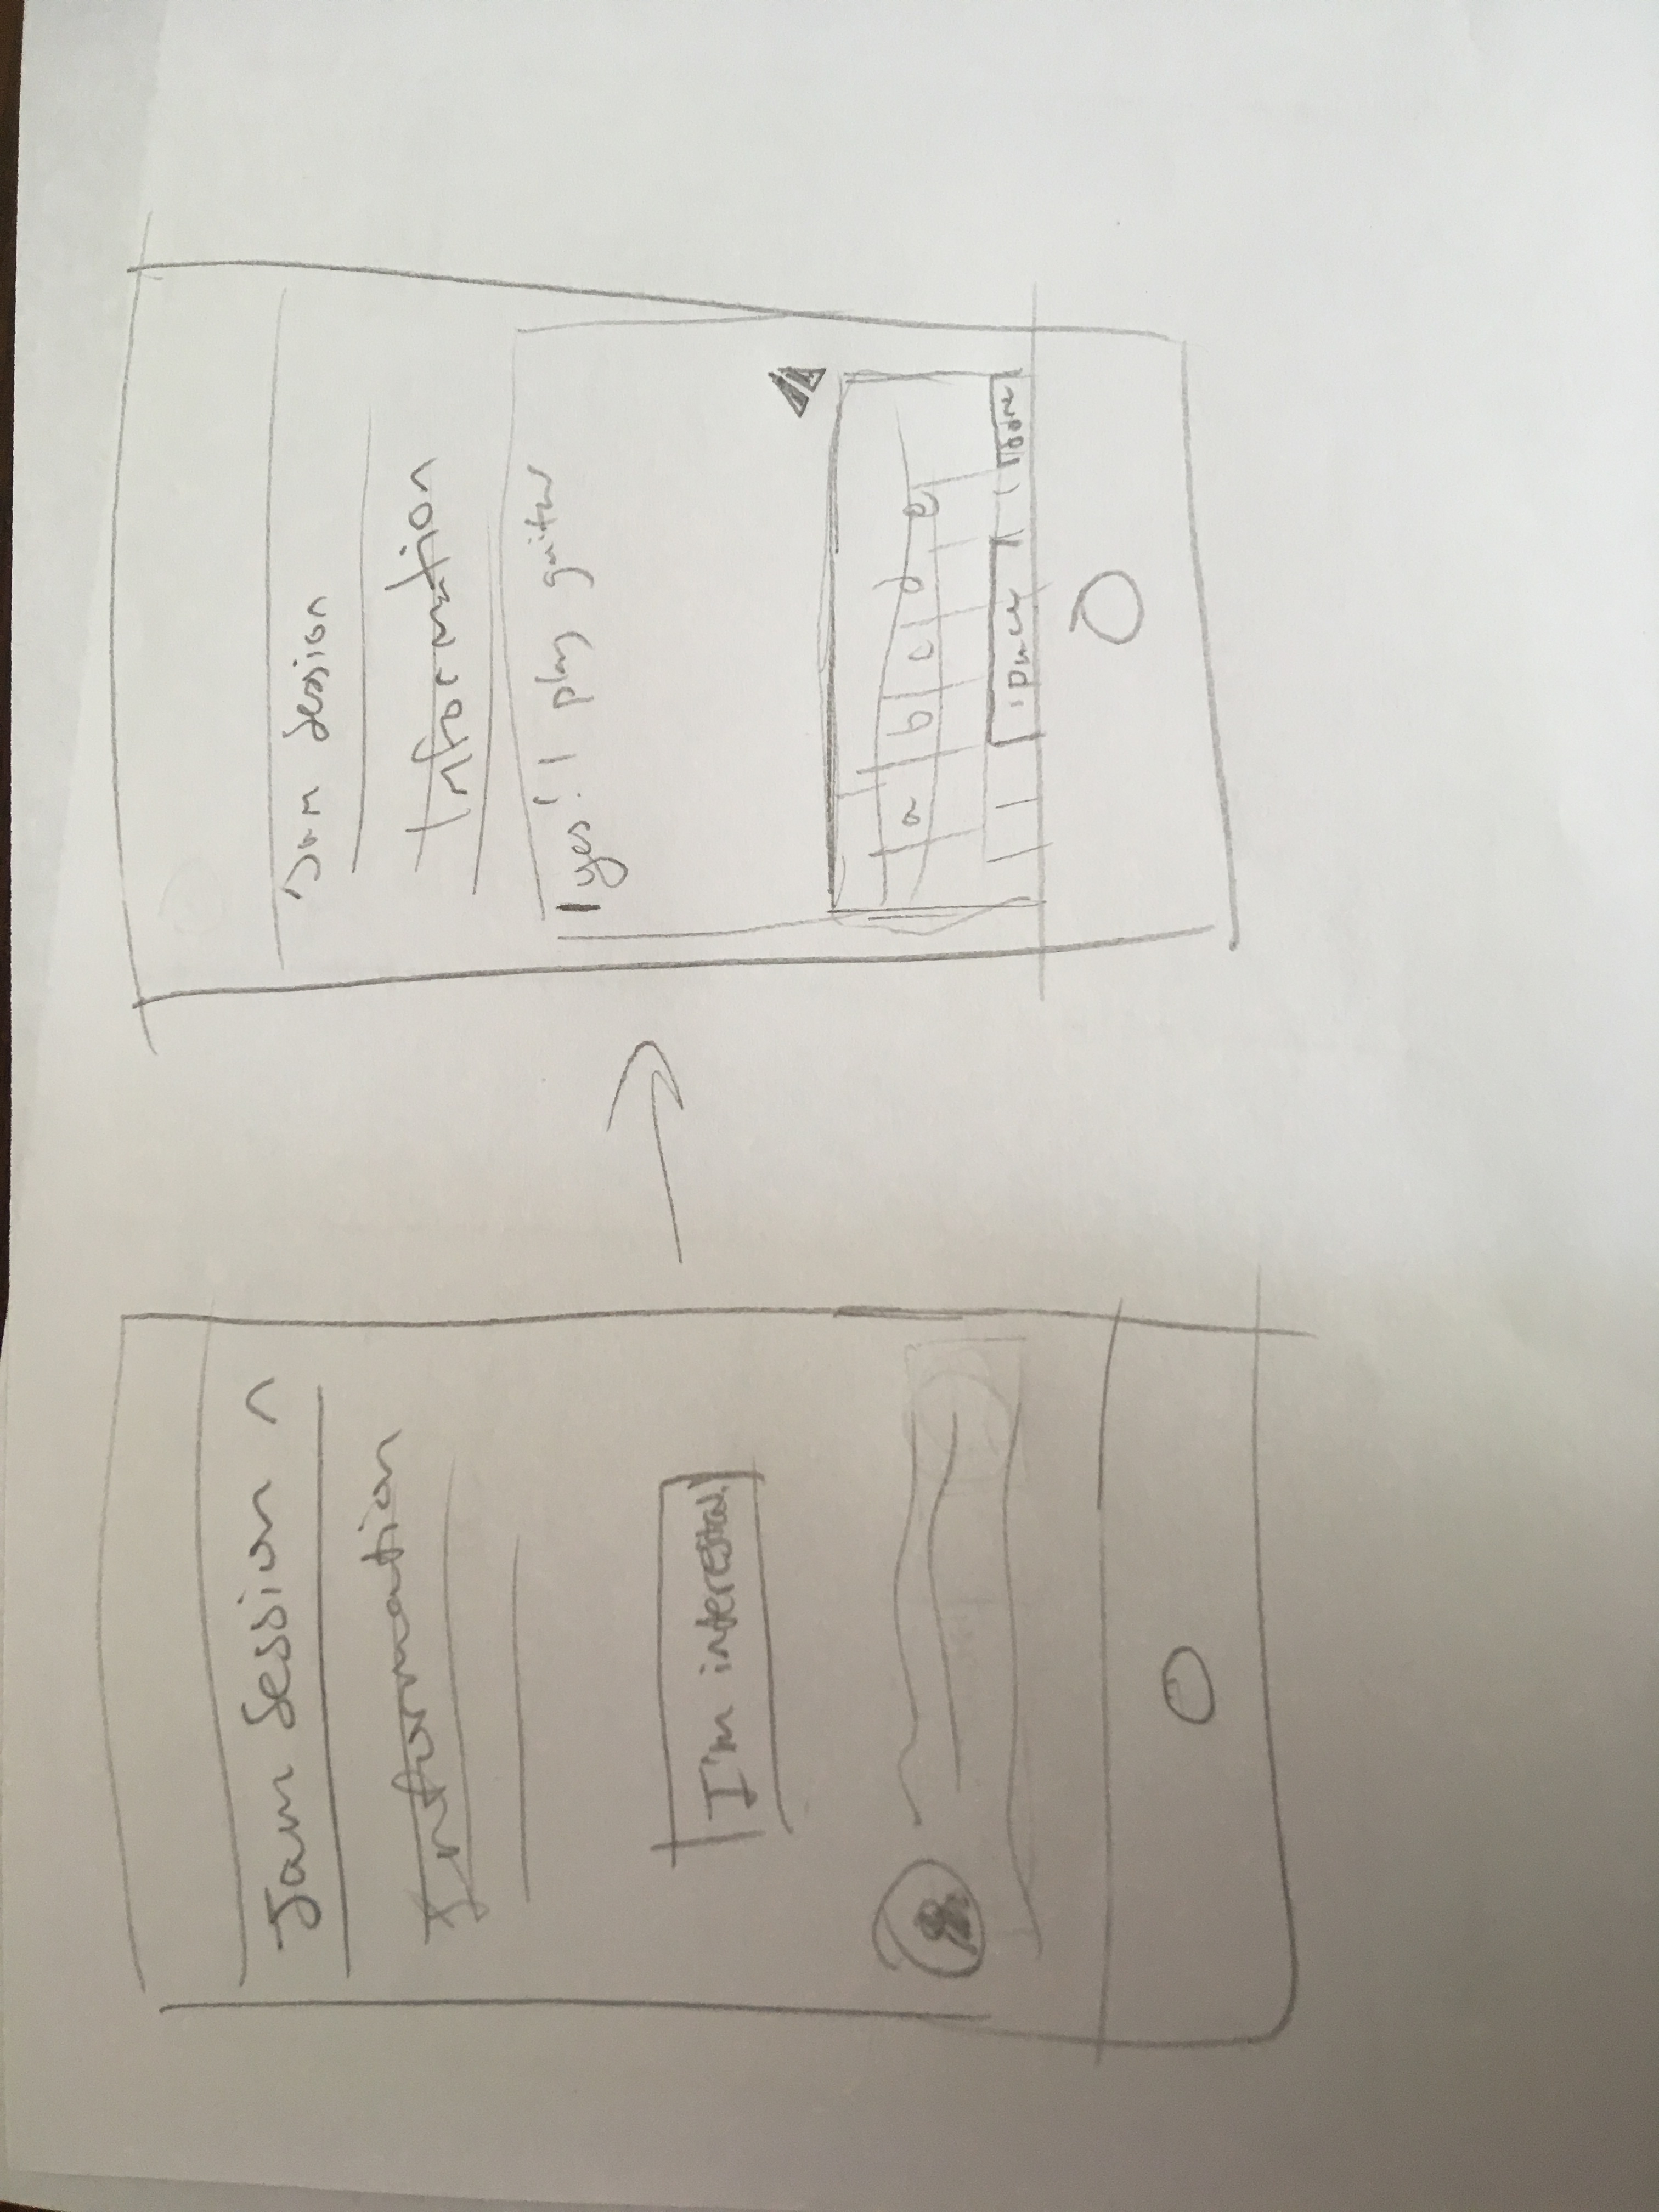 Jam Session
Information
I'm interested!
Jam Session
Information
yes! I play guitar
a b c d e
space
done